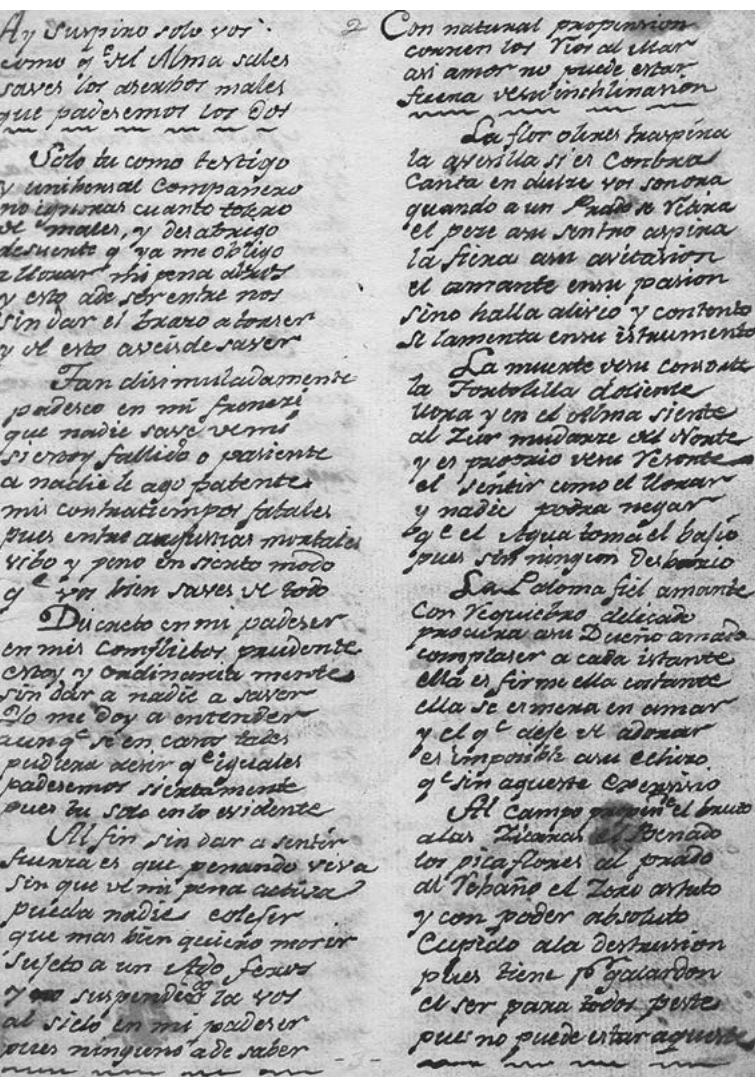 Ay Suspiro solo vos
como q.e del Alma sales
saves los aserbos males
que padesemos los Dos
Solo tu como testigo
y unibersal Compañero
no ignoras cuanto tolero
de males, y desabrigo
desuerte q ya me obligo
a llorar mi pena
y esto ade ser entre nos
sin dar el brazo a torser
y de esto aveis de saver
Tan disimuladamente
padesco en mi frenezi
que nadie save de mi
si estoy fallido o pasiente
a nadie le ago patente
mis contratiempos fatales
pues entre angustias mortales
vibo y peno en sierto modo
q.e vos bien saves de todo
Discreto en mi padeser
en mis Conflictos prudente
estoy y ordinaria mente
sin dar a nadie a saver
Yo me doy a entender
aunq.e se en casos tales
pudiera desir q.e iguales
padesemos siertamente
pues tu solo en lo evidente
Al fin sin dar a sentir
fuerza es que penando viva
sin que de mi pena activa
pueda nadie colejir
que mas bien quiero morir
sujeto a un Ado feros
y no suspender la vos
al sielo en mi padeser
pues ninguno ade saber
2 Con natural propension
corren los Rios al Mar
asi amor no puede estar
fuera de su inchlinasion
La flor olores traspira
la avesilla si es Conora
Canta en dulze vos sonora
quando a un Prado se retira
el peze asu sentro aspira
la fiera asu avitasion
el amante ensu pasion
sino halla alivio y contento
se lamenta ensu istrumento
La muerte desu consorte
la Tortolilla doliente
llora y en el Alma siente
al Zur mudarze del Norte
y es proprio desu Resorte
el sentir como el llorar
y nadie podra negar
q.e el Agua toma el bajio
pues sin ningun
La Paloma fiel amante
con requiebro delicado
procura asu Dueño amado
complaser a cada istante
ella es firme ella costante
ella se esmera en amar
y el q.e dese de adorar
es imposible asu
q.e sin aqueste Exersisio
Al Campo el bruto
alas el Benado
los picaflores al prado
al Rebaño el Zorro astuto
y con poder absoluto
Cupido ala destrusion
pues tiene p.r galardon
el ser para todos peste
pues no puede estar aqueste
- 3 -